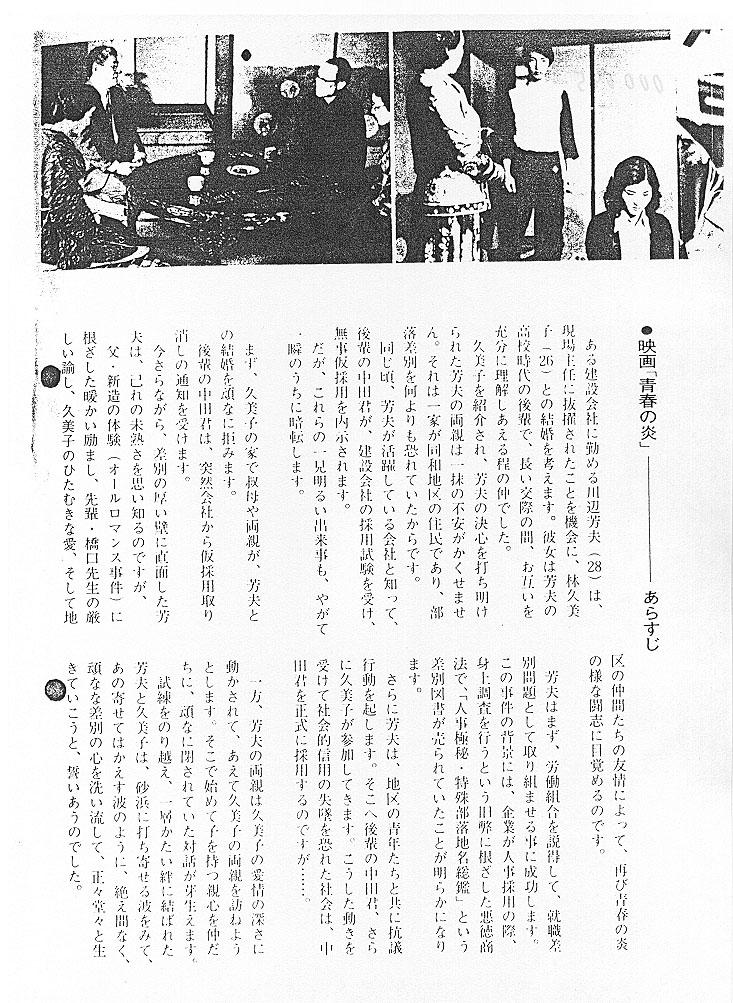 ●映画「青春の炎」――――あらすじ
ある建設会社に勤める川辺芳夫（28）は、
現場主任に抜擢されたことを機会に、林久美
子（26）との結婚を考えます。彼女は芳夫の
高校時代の後輩で、長い交際の間、お互いを
充分に理解しあえる程の仲でした。
久美子を紹介され、芳夫の決心を打ち明け
られた芳夫の両親は一抹の不安がかくせませ
ん。それは一家が同和地区の住民であり、部
落差別を何よりも恐れていたからです。
同じ頃、芳夫が活躍している会社と知って、
後輩の中田君が、建設会社の採用試験を受け、
無事仮採用を内示されます。
だが、これらの一見明るい出来事も、やがて
一瞬のうちに暗転します。
まず、久美子の家で叔母や両親が、芳夫と
の結婚を頑なに拒みます。
後輩の中田君は、突然会社から仮採用取り
消しの通知を受けます。
今さらながら、差別の厚い壁に直面した芳
夫は、己れの未熟さを思い知るのですが、
父・新造の体験（オールロマンス事件）に
根ざした暖かい励まし、先輩・橋口先生の厳
しい諭し、久美子のひたむきな愛、そして地
区の仲間たちの友情によって、再び青春の炎
の様な闘志に目覚めるのです。
芳夫はまず、労働組合を説得して、就職差
別問題として取り組ませる事に成功します。
この事件の背景には、企業が人事採用の際、
身上調査を行うという旧弊に根ざした悪徳商
法で、「人事極秘・特殊部落地名総鑑」という
差別図書が売られていたことが明らかになり
ます。
さらに芳夫は、地区の青年たちと共に抗議
行動を起します。そこへ後輩の中田君、さら
に久美子が参加してきます。こうした動きを
受けて社会的信用の失墜を恐れた会社は、中
田君を正式に採用するのですが……。
一方、芳夫の両親は久美子の愛情の深さに
動かされて、あえて久美子の両親を訪ねよう
とします。そこで始めて子を持つ親心を仲だ
ちに、頑なに閉されていた対話が芽生えます。
試練をのり越え、一層かたい絆に結ばれた
芳夫と久美子は、砂浜に打ち寄せる波をみて、
あの寄せてはかえす波のように、絶え間なく、
頑なな差別の心を洗い流して、正々堂々と生
きていこうと、誓いあうのでした。